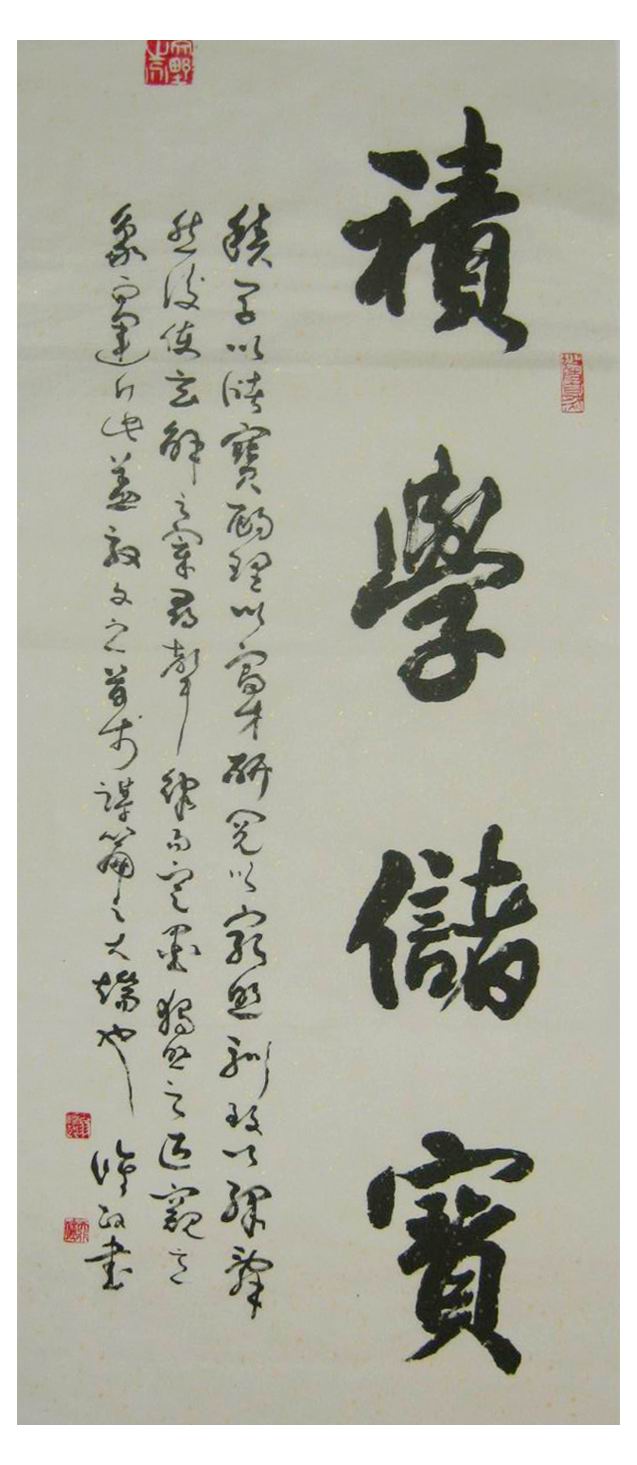 積學儲寶
積學以儲寶酌理以富才研閱以窮照馴致以繹辭
然後使玄解之宰尋聲律而定墨獨照之匠窺意
象而運斤此蓋馭文之首術謀篇之大端也
政書